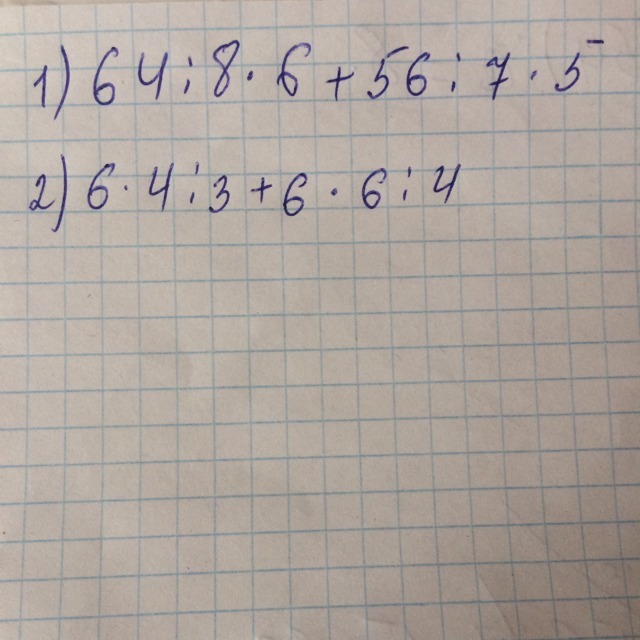 1) 64 : 8 · 6 + 56 : 7 · 5
2) 6 · 4 : 3 + 6 · 6 : 4